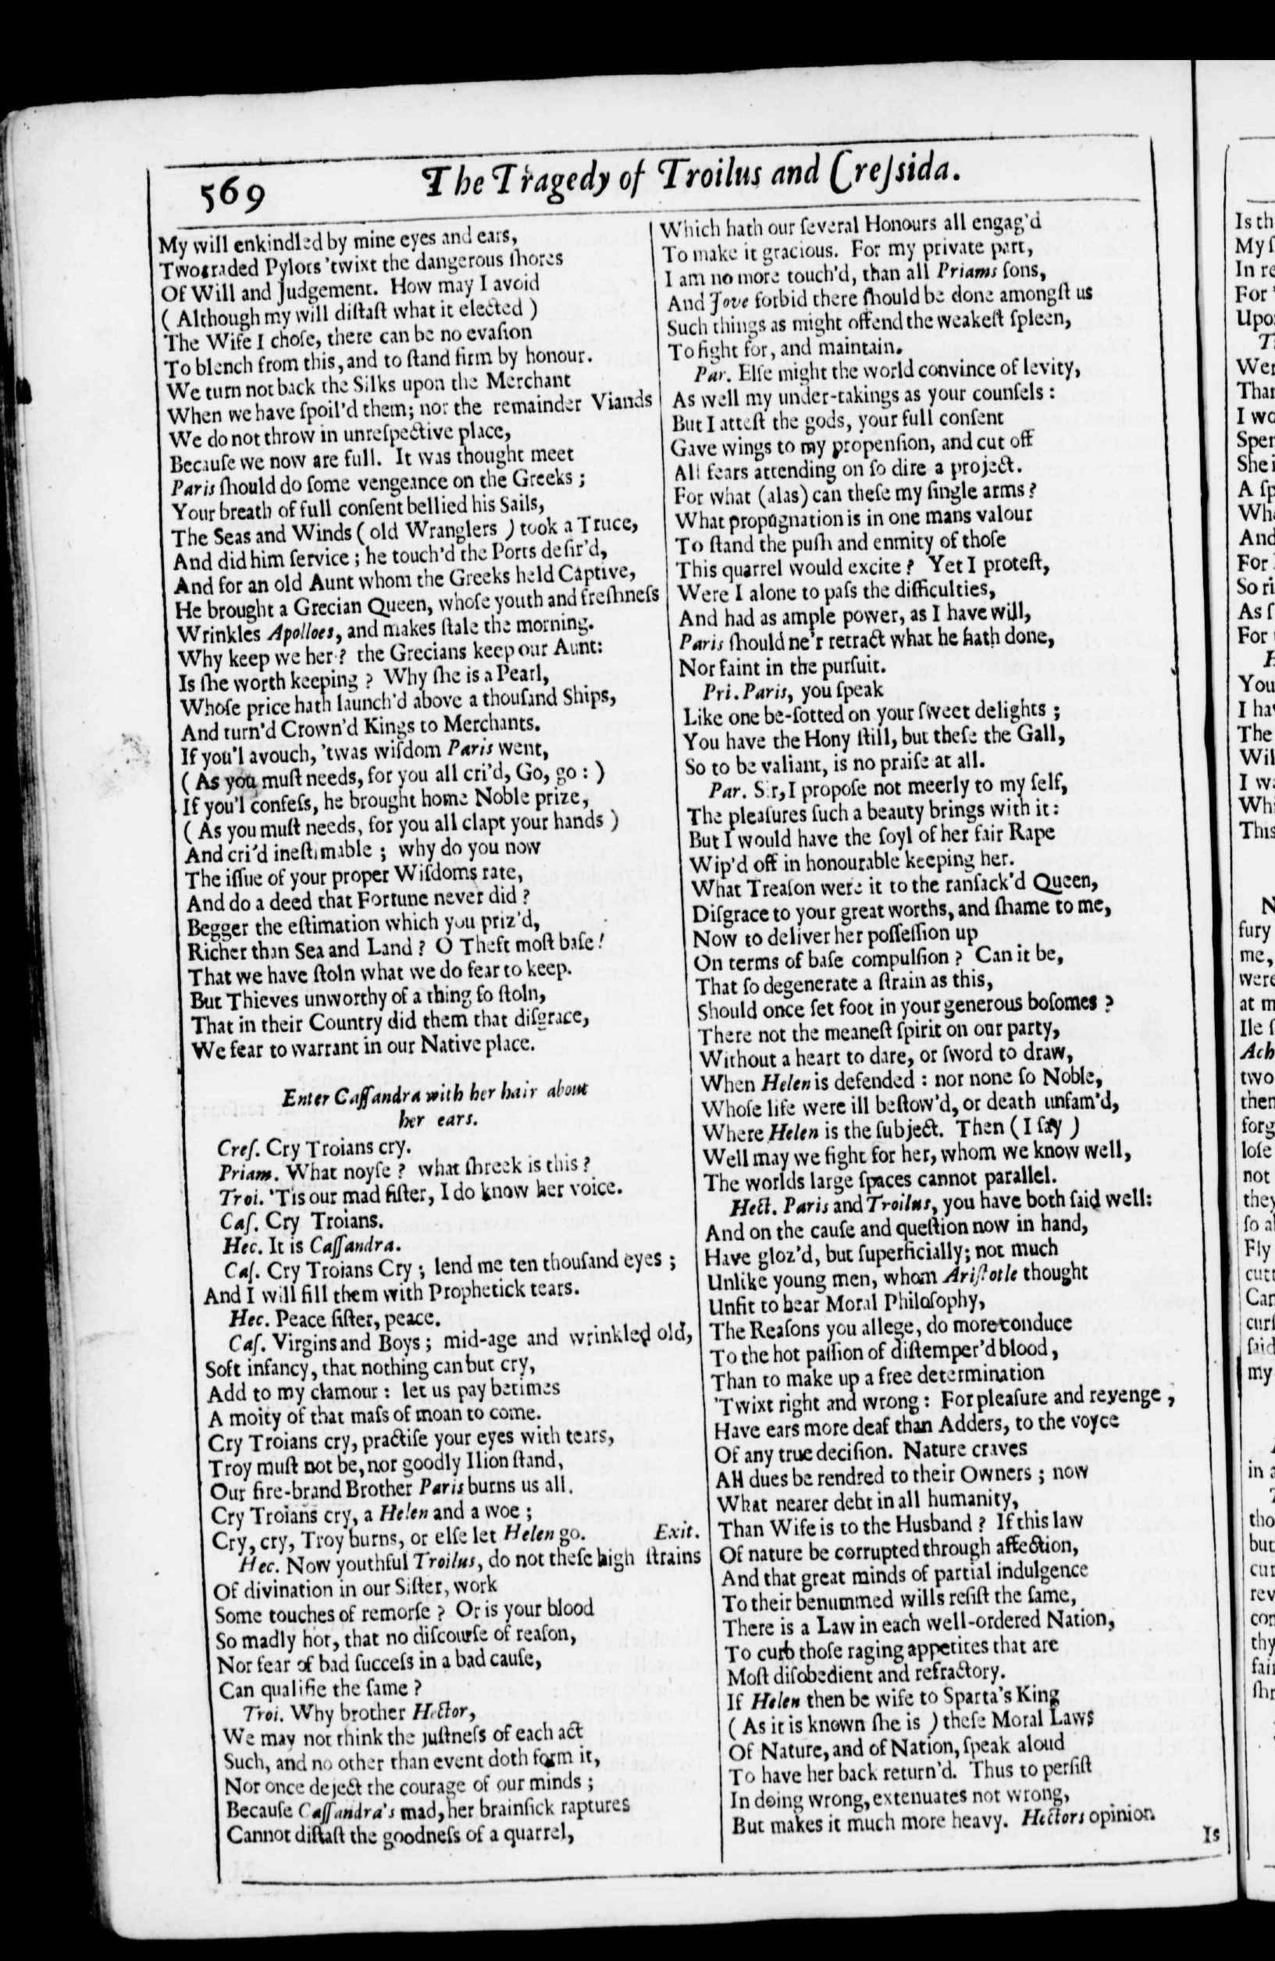 569
The Tragedy of Troilus and Creſsida.
My will enkindled by mine eyes and ears,
Two traded Pylors 'twixt the dangerous ſhores
Of Will and Judgement. How may I avoid
( Although my will diſtaſt what it elected )
The Wife I choſe, there can be no evaſion
To blench from this, and to ſtand firm by honour.
We turn not back the Silks upon the Merchant
When we have ſpoil'd them; nor the remainder Viands
We do not throw in unreſpective place,
Becauſe we now are full. It was thought meet
Paris ſhould do ſome vengeance on the Greeks ;
Your breath of full conſent bellied his Sails,
The Seas and Winds ( old Wranglers ) took a Truce,
And did him ſervice ; he touch'd the Ports deſir'd,
And for an old Aunt whom the Greeks held Captive,
He brought a Grecian Queen, whoſe youth and freſhneſs
Wrinkles Apolloes, and makes ſtale the morning.
Why keep we her ? the Grecians keep our Aunt:
Is ſhe worth keeping ? Why ſhe is a Pearl,
Whoſe price hath launch'd above a thouſand Ships,
And turn'd Crown'd Kings to Merchants.
If you'l avouch, 'twas wiſdom Paris went,
( As you muſt needs, for you all cri'd, Go, go : )
If you'l confeſs, he brought home Noble prize,
( As you muſt needs, for you all clapt your hands )
And cri'd ineſtimable ; why do you now
The iſſue of your proper Wiſdoms rate,
And do a deed that Fortune never did ?
Begger the eſtimation which you priz'd,
Richer than Sea and Land ? O Theft moſt baſe !
That we have ſtoln what we do fear to keep.
But Thieves unworthy of a thing ſo ſtoln,
That in their Country did them that diſgrace,
We fear to warrant in our Native place.
Enter Caſſandra with her hair about
her ears.
Creſ. Cry Troians cry.
Priam. What noyſe ? what ſhreek is this ?
Troi. 'Tis our mad ſiſter, I do know her voice.
Caſ. Cry Troians.
Hec. It is Caſſandra.
Caſ. Cry Troians Cry ; lend me ten thouſand eyes ;
And I will fill them with Prophetick tears.
Hec. Peace ſiſter, peace.
Caſ. Virgins and Boys ; mid-age and wrinkled old,
Soft infancy, that nothing can but cry,
Add to my clamour : let us pay betimes
A moity of that maſs of moan to come.
Cry Troians cry, practiſe your eyes with tears,
Troy muſt not be, nor goodly Ilion ſtand,
Our fire-brand Brother Paris burns us all.
Cry Troians cry, a Helen and a woe ;
Cry, cry, Troy burns, or elſe let Helen go. Exit.
Hec. Now youthful Troilus, do not theſe high ſtrains
Of divination in our Siſter, work
Some touches of remorſe ? Or is your blood
So madly hot, that no diſcourſe of reaſon,
Nor fear of bad ſucceſs in a bad cauſe,
Can qualifie the ſame ?
Troi. Why brother Hector,
We may not think the juſtneſs of each act
Such, and no other than event doth form it,
Nor once deject the courage of our minds ;
Becauſe Caſſandra's mad, her brainſick raptures
Cannot diſtaſt the goodneſs of a quarrel,
Which hath our ſeveral Honours all engag'd
To make it gracious. For my private part,
I am no more touch'd, than all Priams ſons,
And Jove forbid there ſhould be done amongſt us
Such things as might offend the weakeſt ſpleen,
To fight for, and maintain.
Par. Elſe might the world convince of levity,
As well my under-takings as your counſels :
But I atteſt the gods, your full conſent
Gave wings to my propenſion, and cut off
All fears attending on ſo dire a project.
For what (alas) can theſe my ſingle arms ?
What propugnation is in one mans valour
To ſtand the puſh and enmity of thoſe
This quarrel would excite ? Yet I proteſt,
Were I alone to paſs the difficulties,
And had as ample power, as I have will,
Paris ſhould ne'r retract what he hath done,
Nor faint in the purſuit.
Pri. Paris, you ſpeak
Like one be-ſotted on your ſweet delights ;
You have the Hony ſtill, but theſe the Gall,
So to be valiant, is no praiſe at all.
Par. Sir, I propoſe not meerly to my ſelf,
The pleaſures ſuch a beauty brings with it :
But I would have the ſoyl of her fair Rape
Wip'd off in honourable keeping her.
What Treaſon were it to the ranſack'd Queen,
Diſgrace to your great worths, and ſhame to me,
Now to deliver her poſſeſſion up
On terms of baſe compulſion ? Can it be,
That ſo degenerate a ſtrain as this,
Should once ſet foot in your generous boſomes ?
There not the meaneſt ſpirit on our party,
Without a heart to dare, or ſword to draw,
When Helen is defended : nor none ſo Noble,
Whoſe life were ill beſtow'd, or death unfam'd,
Where Helen is the ſubject. Then ( I ſay )
Well may we fight for her, whom we know well,
The worlds large ſpaces cannot parallel.
Hect. Paris and Troilus, you have both ſaid well:
And on the cauſe and queſtion now in hand,
Have gloz'd, but ſuperficially; not much
Unlike young men, whom Ariſtotle thought
Unfit to hear Moral Philoſophy,
The Reaſons you allege, do more conduce
To the hot paſſion of diſtemper'd blood,
Than to make up a free determination
'Twixt right and wrong : For pleaſure and revenge,
Have ears more deaf than Adders, to the voyce
Of any true deciſion. Nature craves
All dues be rendred to their Owners ; now
What nearer debt in all humanity,
Than Wife is to the Husband ? If this law
Of nature be corrupted through affection,
And that great minds of partial indulgence
To their benummed wills reſiſt the ſame,
There is a Law in each well-ordered Nation,
To curb thoſe raging appetites that are
Moſt diſobedient and refractory.
If Helen then be wife to Sparta's King
( As it is known ſhe is ) theſe Moral Laws
Of Nature, and of Nation, ſpeak aloud
To have her back return'd. Thus to perſiſt
In doing wrong, extenuates not wrong,
But makes it much more heavy. Hectors opinion
Is